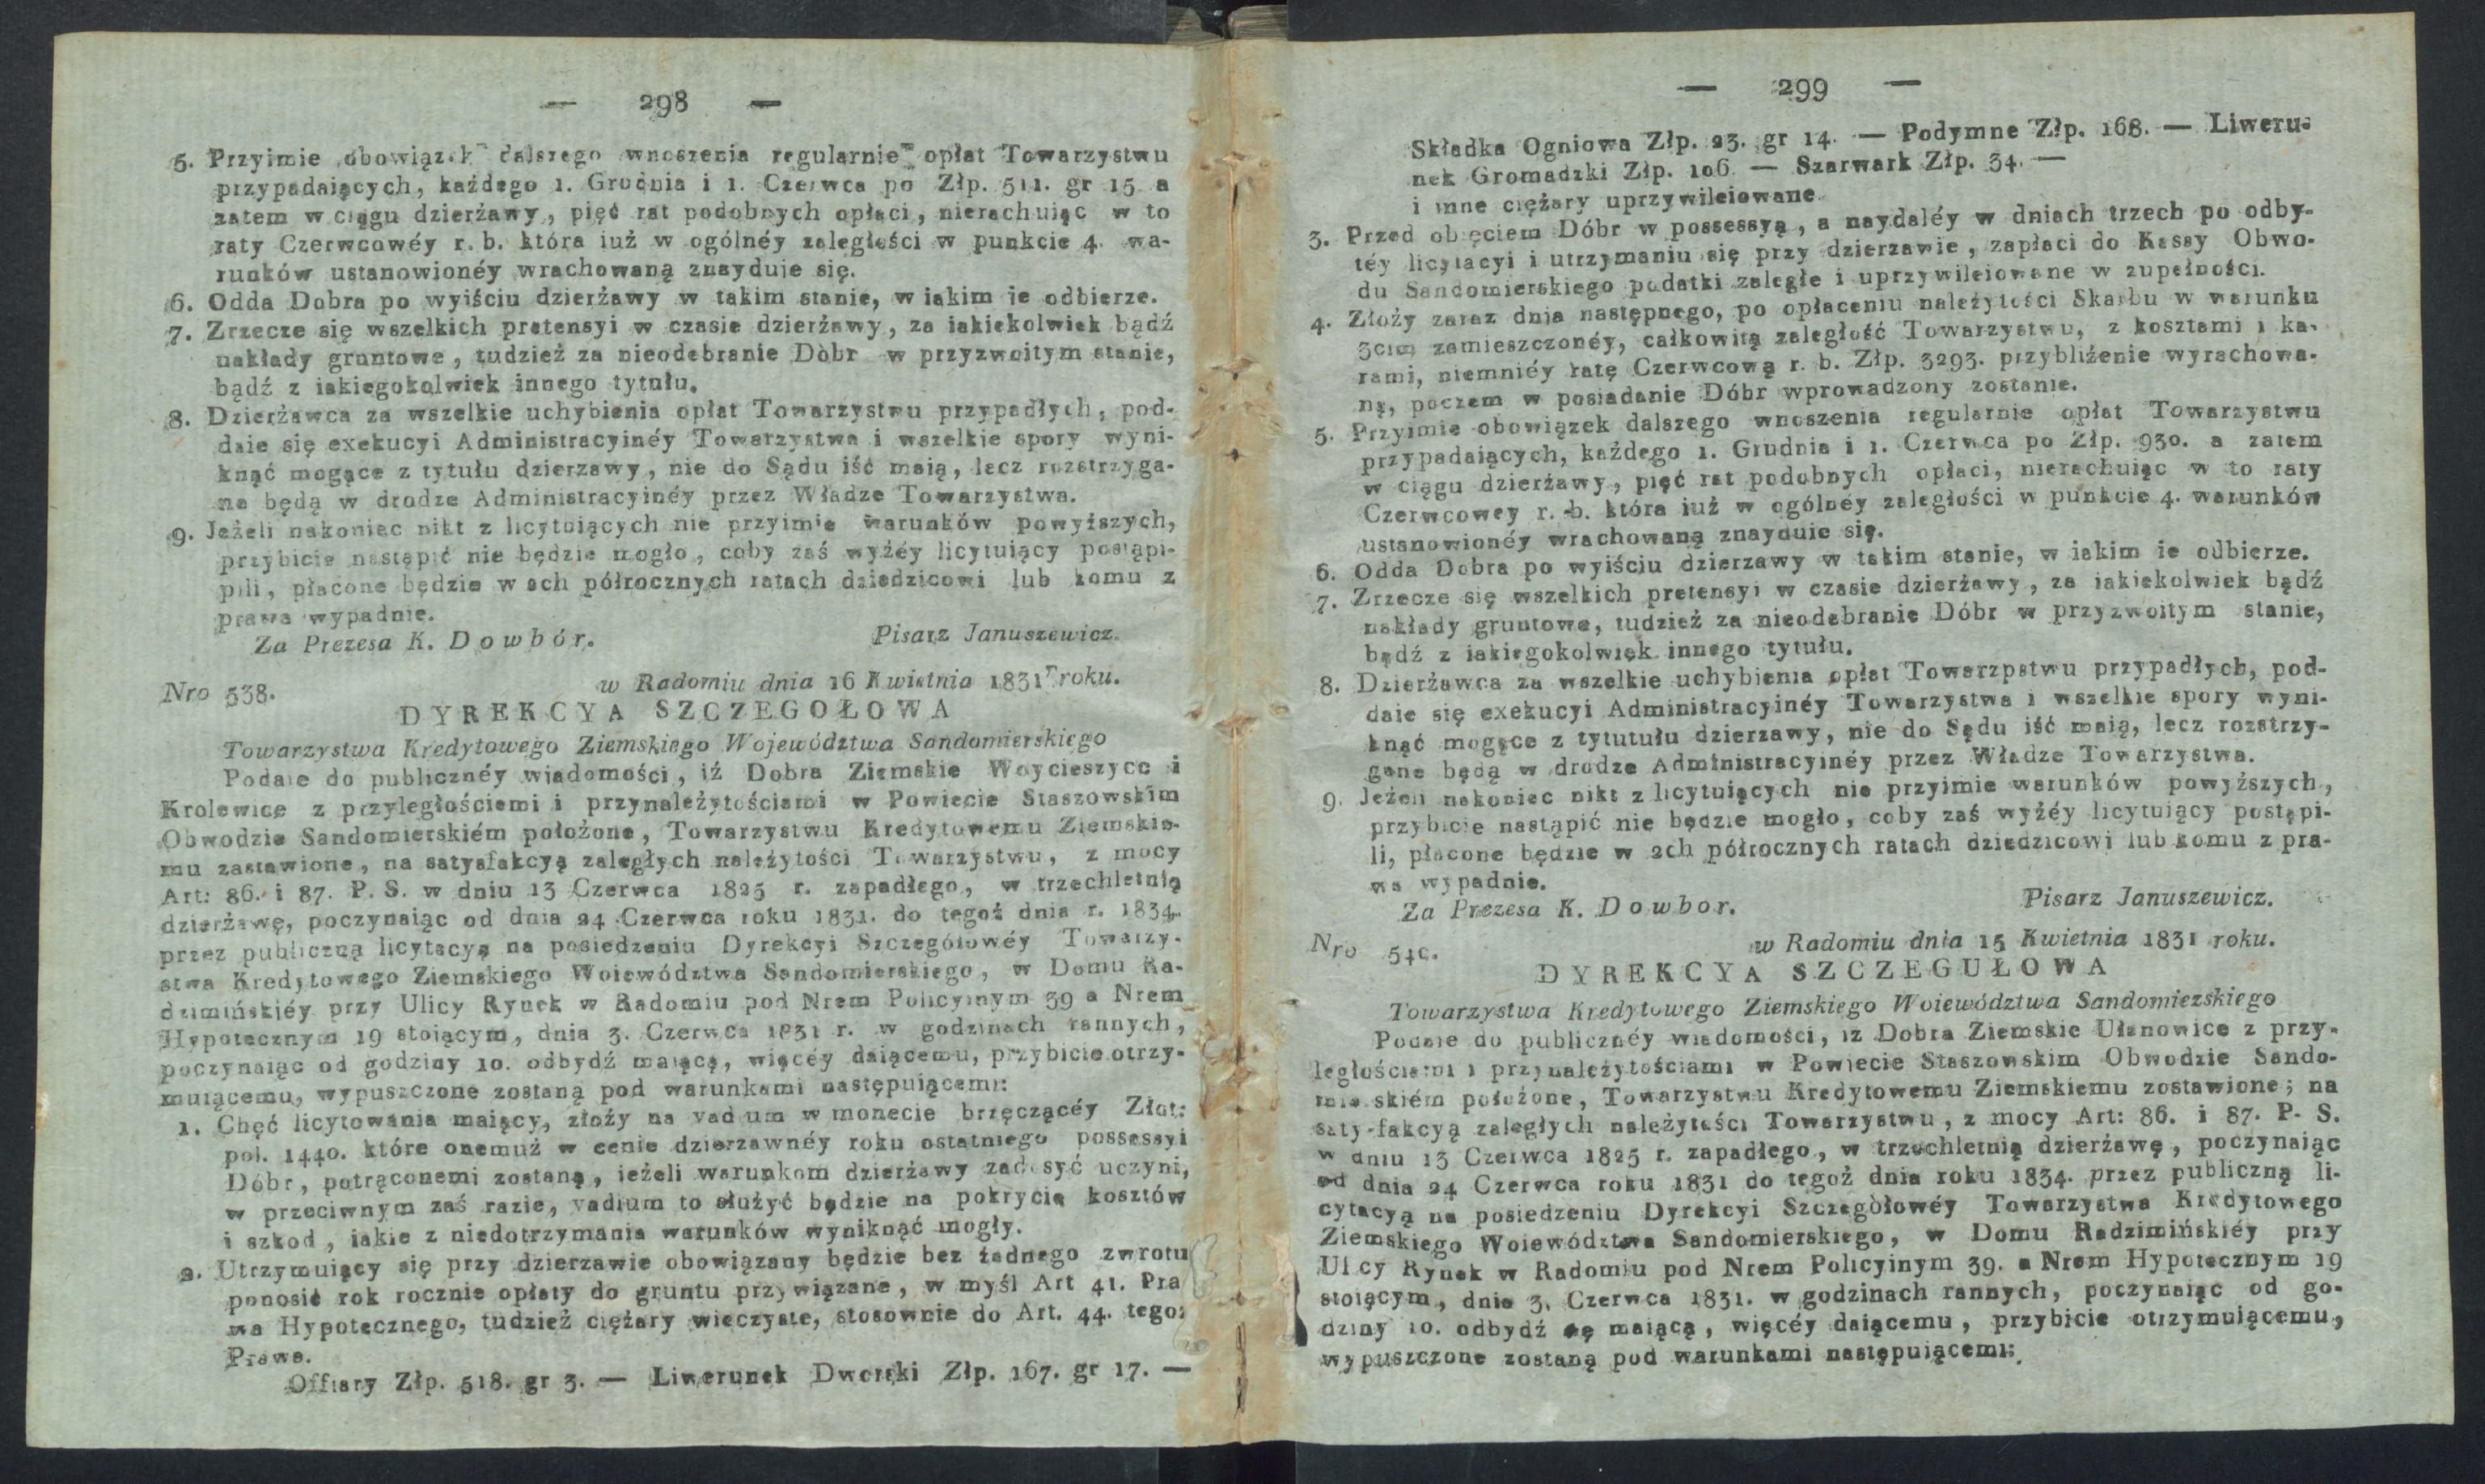 — 298 —
5. Przyimie obowiązek dalszego wnoszenia regularnie opłat Towarzystwu
przypadaiących, każdego 1. Grudnia i 1. Czerwca po Złp. 511. gr 15 a
zatem w ciągu dzierżawy, pięć rat podobnych opłaci, nierachuiąc w to
raty Czerwcowéy r. b. która iuż w ogólnéy zaległości w punkcie 4. wa-
runków ustanowionéy wrachowaną znayduie się.
6. Odda Dobra po wyiściu dzierżawy w takim stanie, w iakim ie odbierze.
7. Zrzecze się wszelkich pretensyi w czasie dzierżawy, za iakiekolwiek bądź
nakłady gruntowe, tudzież za nieodebranie Dóbr w przyzwoitym stanie,
bądź z iakiegokolwiek innego tytułu.
8. Dzierżawca za wszelkie uchybienia opłat Towarzystwu przypadłych, pod-
daie się exekucyi Administracyinéy Towarzystwa i wszelkie spory wyni-
knąć mogące z tytułu dzierzawy, nie do Sądu iść maią, lecz rozstrzyga-
ne będą w drodze Administracyinéy przez Władze Towarzystwa.
9. Jeżeli nakoniec nikt z licytuiących nie przyimie warunków powyższych,
przybicie nastąpić nie będzie mogło, coby zaś wyżéy licytuiący postąpi-
pili, płacone będzie w 2ch półrocznych ratach dziedzicowi lub komu z
prawa wypadnie.
Za Prezesa K. Dowbór. Pisarz Januszewicz.
Nro 538. w Radomiu dnia 16 Kwietnia 1831 roku.
DYREKCYA SZCZEGOŁOWA
Towarzystwa Kredytowego Ziemskiego Województwa Sandomierskiego
Podaie do publicznéy wiadomości, iż Dobra Ziemskie Woycieszyce i
Krolewice z przyległościami i przynależytościami w Powiecie Staszowskim
Obwodzie Sandomierskiém położone, Towarzystwu Kredytowemu Ziemskie-
mu zastawione, na satysfakcyą zaległych należytości Towarzystwu, z mocy
Art: 86. i 87. P. S. w dniu 13 Czerwca 1825 r. zapadłego, w trzechletnią
dzierżawę, poczynaiąc od dnia 24 Czerwca roku 1831. do tegoż dnia r. 1834.
przez publiczną licytacyą na posiedzeniu Dyrekcyi Szczegółowéy Towarzy-
stwa Kredytowego Ziemskiego Woiewództwa Sandomierskiego, w Domu Ra-
dzimińskiéy przy Ulicy Rynek w Radomiu pod Nrem Policyinym 39 a Nrem
Hypotecznym 19 stoiącym, dnia 3. Czerwca 1831 r. w godzinach rannych,
poczynaiąc od godziny 10. odbydź maiącą, więcéy daiącemu, przybicie otrzy-
muiącemu, wypuszczone zostaną pod warunkami następuiącemi:
1. Chęć licytowania maiący, złoży na vadium w monecie brzęczącéy Złot:
pol. 1440. które onemuż w cenie dzierzawnéy roku ostatniego possessyi
Dóbr, potrąconemi zostaną, ieżeli warunkom dzierżawy zadosyć uczyni,
w przeciwnym zaś razie, vadium to służyć będzie na pokrycie kosztów
i szkod, iakie z niedotrzymania warunków wyniknąć mogły.
2. Utrzymuiący się przy dzierzawie obowiązany będzie bez żadnego zwrotu
ponosić rok rocznie opłaty do gruntu przywiązane, w myśl Art 41. Pra
wa Hypotecznego, tudzież ciężary wieczyste, stosownie do Art. 44. tego:
Prawa.
Offiary Złp. 518. gr 3. — Liwerunek Dworski Złp. 167. gr 17. —
— 299 —
Składka Ogniowa Złp. 23. gr 14. — Podymne Złp. 168. — Liweru-
nek Gromadzki Złp. 106. — Szarwark Złp. 34. —
i inne ciężary uprzywileiowane.
3. Przed obięciem Dóbr w possessyą, a naydaléy w dniach trzech po odby-
téy licytacyi i utrzymaniu się przy dzierzawie, zapłaci do Kassy Obwo-
du Sandomierskiego podatki zaległe i uprzywileiowane w zupełności.
4. Złoży zaraz dnia następnego, po opłaceniu należytości Skarbu w warunku
3cim zamieszczonéy, całkowitą zaległość Towarzystwu, z kosztami i ka-
rami, niemniéy ratę Czerwcową r. b. Złp. 3293. przybliżenie wyrachowa-
ną, poczem w posiadanie Dóbr wprowadzony zostanie.
5. Przyimie obowiązek dalszego wnoszenia regularnie opłat Towarzystwu
przypadaiących, każdego 1. Grudnia i 1. Czerwca po Złp. 930. a zatem
w ciągu dzierżawy, pięć rat podobnych opłaci, nierachuiąc w to raty
Czerwcowey r. b. która iuż w ogólney zaległości w punkcie 4. warunków
ustanowionéy wrachowaną znayduie się.
6. Odda Dobra po wyiściu dzierzawy w takim stanie, w iakim ie odbierze.
7. Zrzecze się wszelkich pretensyi w czasie dzierżawy, za iakiekolwiek bądź
nakłady gruntowe, tudzież za nieodebranie Dóbr w przyzwoitym stanie,
bądź z iakiegokolwiek innego tytułu.
8. Dzierżawca za wszelkie uchybienia opłat Towarzpstwu przypadłych, pod-
daie się exekucyi Administracyinéy Towarzystwa i wszelkie spory wyni-
knąć mogące z tytutułu dzierzawy, nie do Sądu iść maią, lecz rozstrzy-
gane będą w drodze Administracyinéy przez Władze Towarzystwa.
9. Jeżeli nakoniec nikt z licytuiących nie przyimie warunków powyższych,
przybicie nastąpić nie będzie mogło, coby zaś wyżéy licytuiący postąpi-
li, płacone będzie w 2ch półrocznych ratach dziedzicowi lub komu z pra-
wa wypadnie.
Za Prezesa K. Dowbor. Pisarz Januszewicz.
Nro 540. w Radomiu dnia 15 Kwietnia 1831 roku.
DYREKCYA SZCZEGUŁOWA
Towarzystwa Kredytowego Ziemskiego Woiewództwa Sandomiezskiego
Podaie do publicznéy wiadomości, iz Dobra Ziemskie Ułanowice z przy-
ległościami i przynależytościami w Powiecie Staszowskim Obwodzie Sando-
mierskiém położone, Towarzystwu Kredytowemu Ziemskiemu zostawione; na
satysfakcyą zaległych należytości Towarzystwu, z mocy Art: 86. i 87. P. S.
w dniu 13 Czerwca 1825 r. zapadłego, w trzechletnią dzierżawę, poczynaiąc
od dnia 24 Czerwca roku 1831 do tegoż dnia roku 1834. przez publiczną li-
cytacyą na posiedzeniu Dyrekcyi Szczegółowéy Towarzystwa Kredytowego
Ziemskiego Woiewództwa Sandomierskiego, w Domu Radzimińskiéy przy
Ulicy Rynek w Radomiu pod Nrem Policyinym 39. a Nrem Hypotecznym 19
stoiącym, dnia 3. Czerwca 1831. w godzinach rannych, poczynaiąc od go-
dziny 10. odbydź się maiącą, więcéy daiącemu, przybicie otrzymuiącemu,
wypuszczone zostaną pod warunkami następuiącemi: